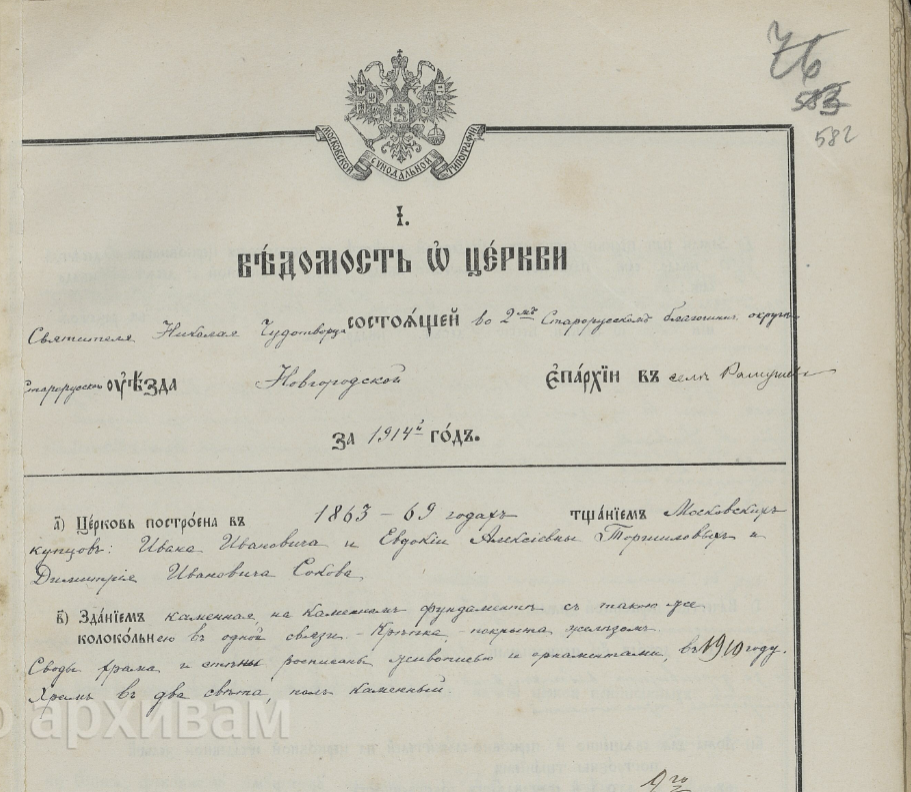 76
583
582
МОСКОВСКОЙ СУНОДАЛЬНОЙ ТИПОГРАФІИ
І.
ВѢ́ДОМОСТЬ Ѽ ЦЕ́РКВИ
Святителя Николая Чудотворца СОСТОѦ́ЩЕЙ во 2мъ Старорусскомъ благочин. округѣ
Старорусскаго ОУѢ́ЗДА Новгородской ЄПА́РХІИ ВЪ селѣ Рамушевѣ
ЗА 1914й ГО́ДЪ.
а҃) ЦЕ́РКОВЬ ПОСТРО́ЕНА ВЪ 1863 – 69 годахъ ТЩА́НІЕМЪ Московскихъ
купцовъ: Ивана Ивановича и Евдокіи Алексіевны Торшиловыхъ и
Димитрія Ивановича Сокова
в҃) ЗДА́НІЕМЪ каменная, на каменномъ фундаментѣ съ такою же
КОЛОКО́ЛЬНЕЮ въ одной связи – Крѣпка, – покрыта желѣзомъ.
Своды храма и стѣны росписаны живописью и орнаментами, въ 1910 году.
Храмъ въ два свѣта, полъ каменный.
о архивам